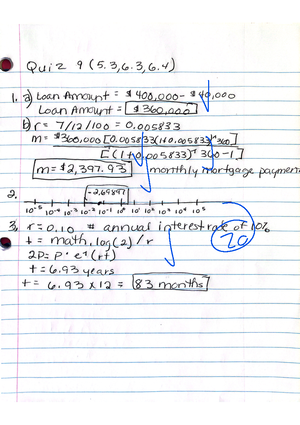 Quiz 9 (5.3,6.3,6.4)
1. a) Loan Amount = $400,000 - $40,000
Loan Amount = $360,000
b) r = 7/12/100 = 0.005833
m = $360,000 [0.005833(1+0.005833)^360]
[(1+0.005833)^360-1]
m = $2,397.93 monthly mortgage payment
2. -2.69897
10^-5 10^-4 10^-3 10^-2 10^-1 10^0 10^1 10^2 10^3 10^4 10^5
3. r = 0.10 # annual interest rate of 10%
t = math.log(2) / r
20
2P = P * e^(rt)
t = 6.93 years
t = 6.93 x 12 = 83 months